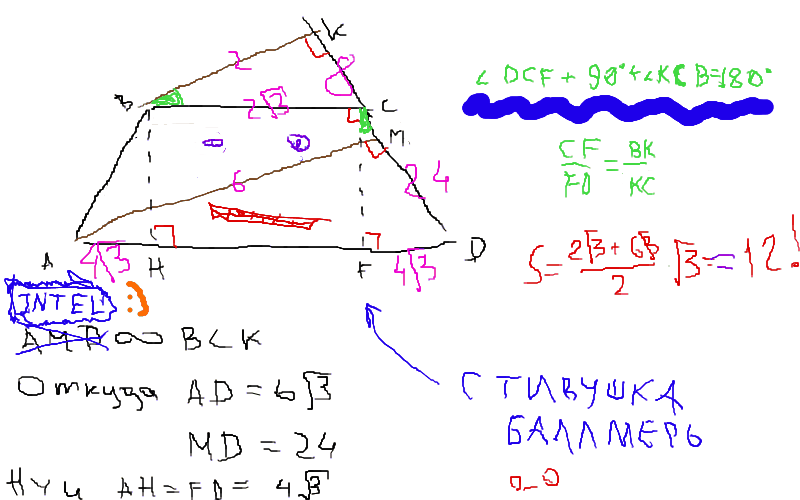 K
2
8
B
2√3
C
M
6
24
A
4√3
H
F
4√3
D
∠ DCF + 90° + ∠KCB = 180°
CF/FD = BK/KC
S = (2√3 + 6√3)/2 √3 = 12!
INTEL :)
AMD ∞ BCK
Откуда AD = 6√3
MD = 24
Ну и AH = FD = 4√3
СТИВУШКА
БАЛЛМЕРЬ
о_О